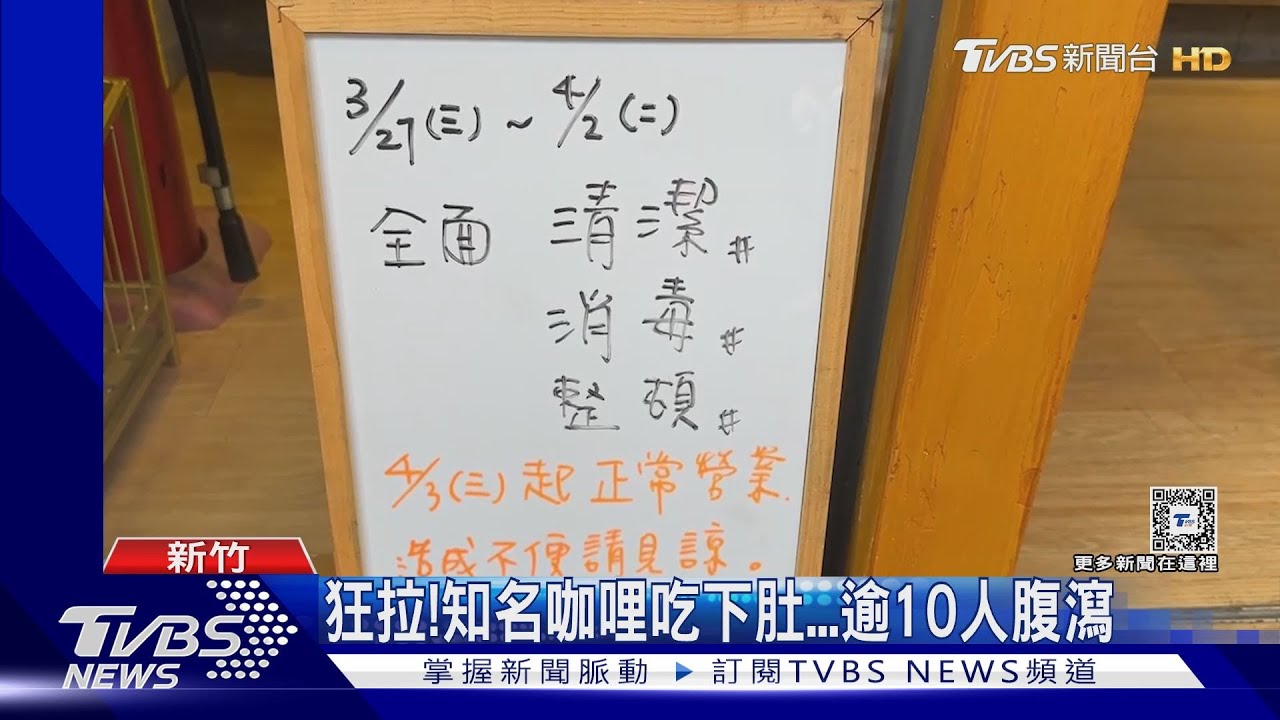 TVBS新聞台 HD
3/27(三)~4/2(二)
全面 清潔#
消毒#
整頓#
4/3(三)起正常營業.
造成不便請見諒。
更多新聞在這裡
新竹
狂拉!知名咖哩吃下肚...逾10人腹瀉
TVBS NEWS
掌握新聞脈動 ▶ 訂閱TVBS NEWS頻道